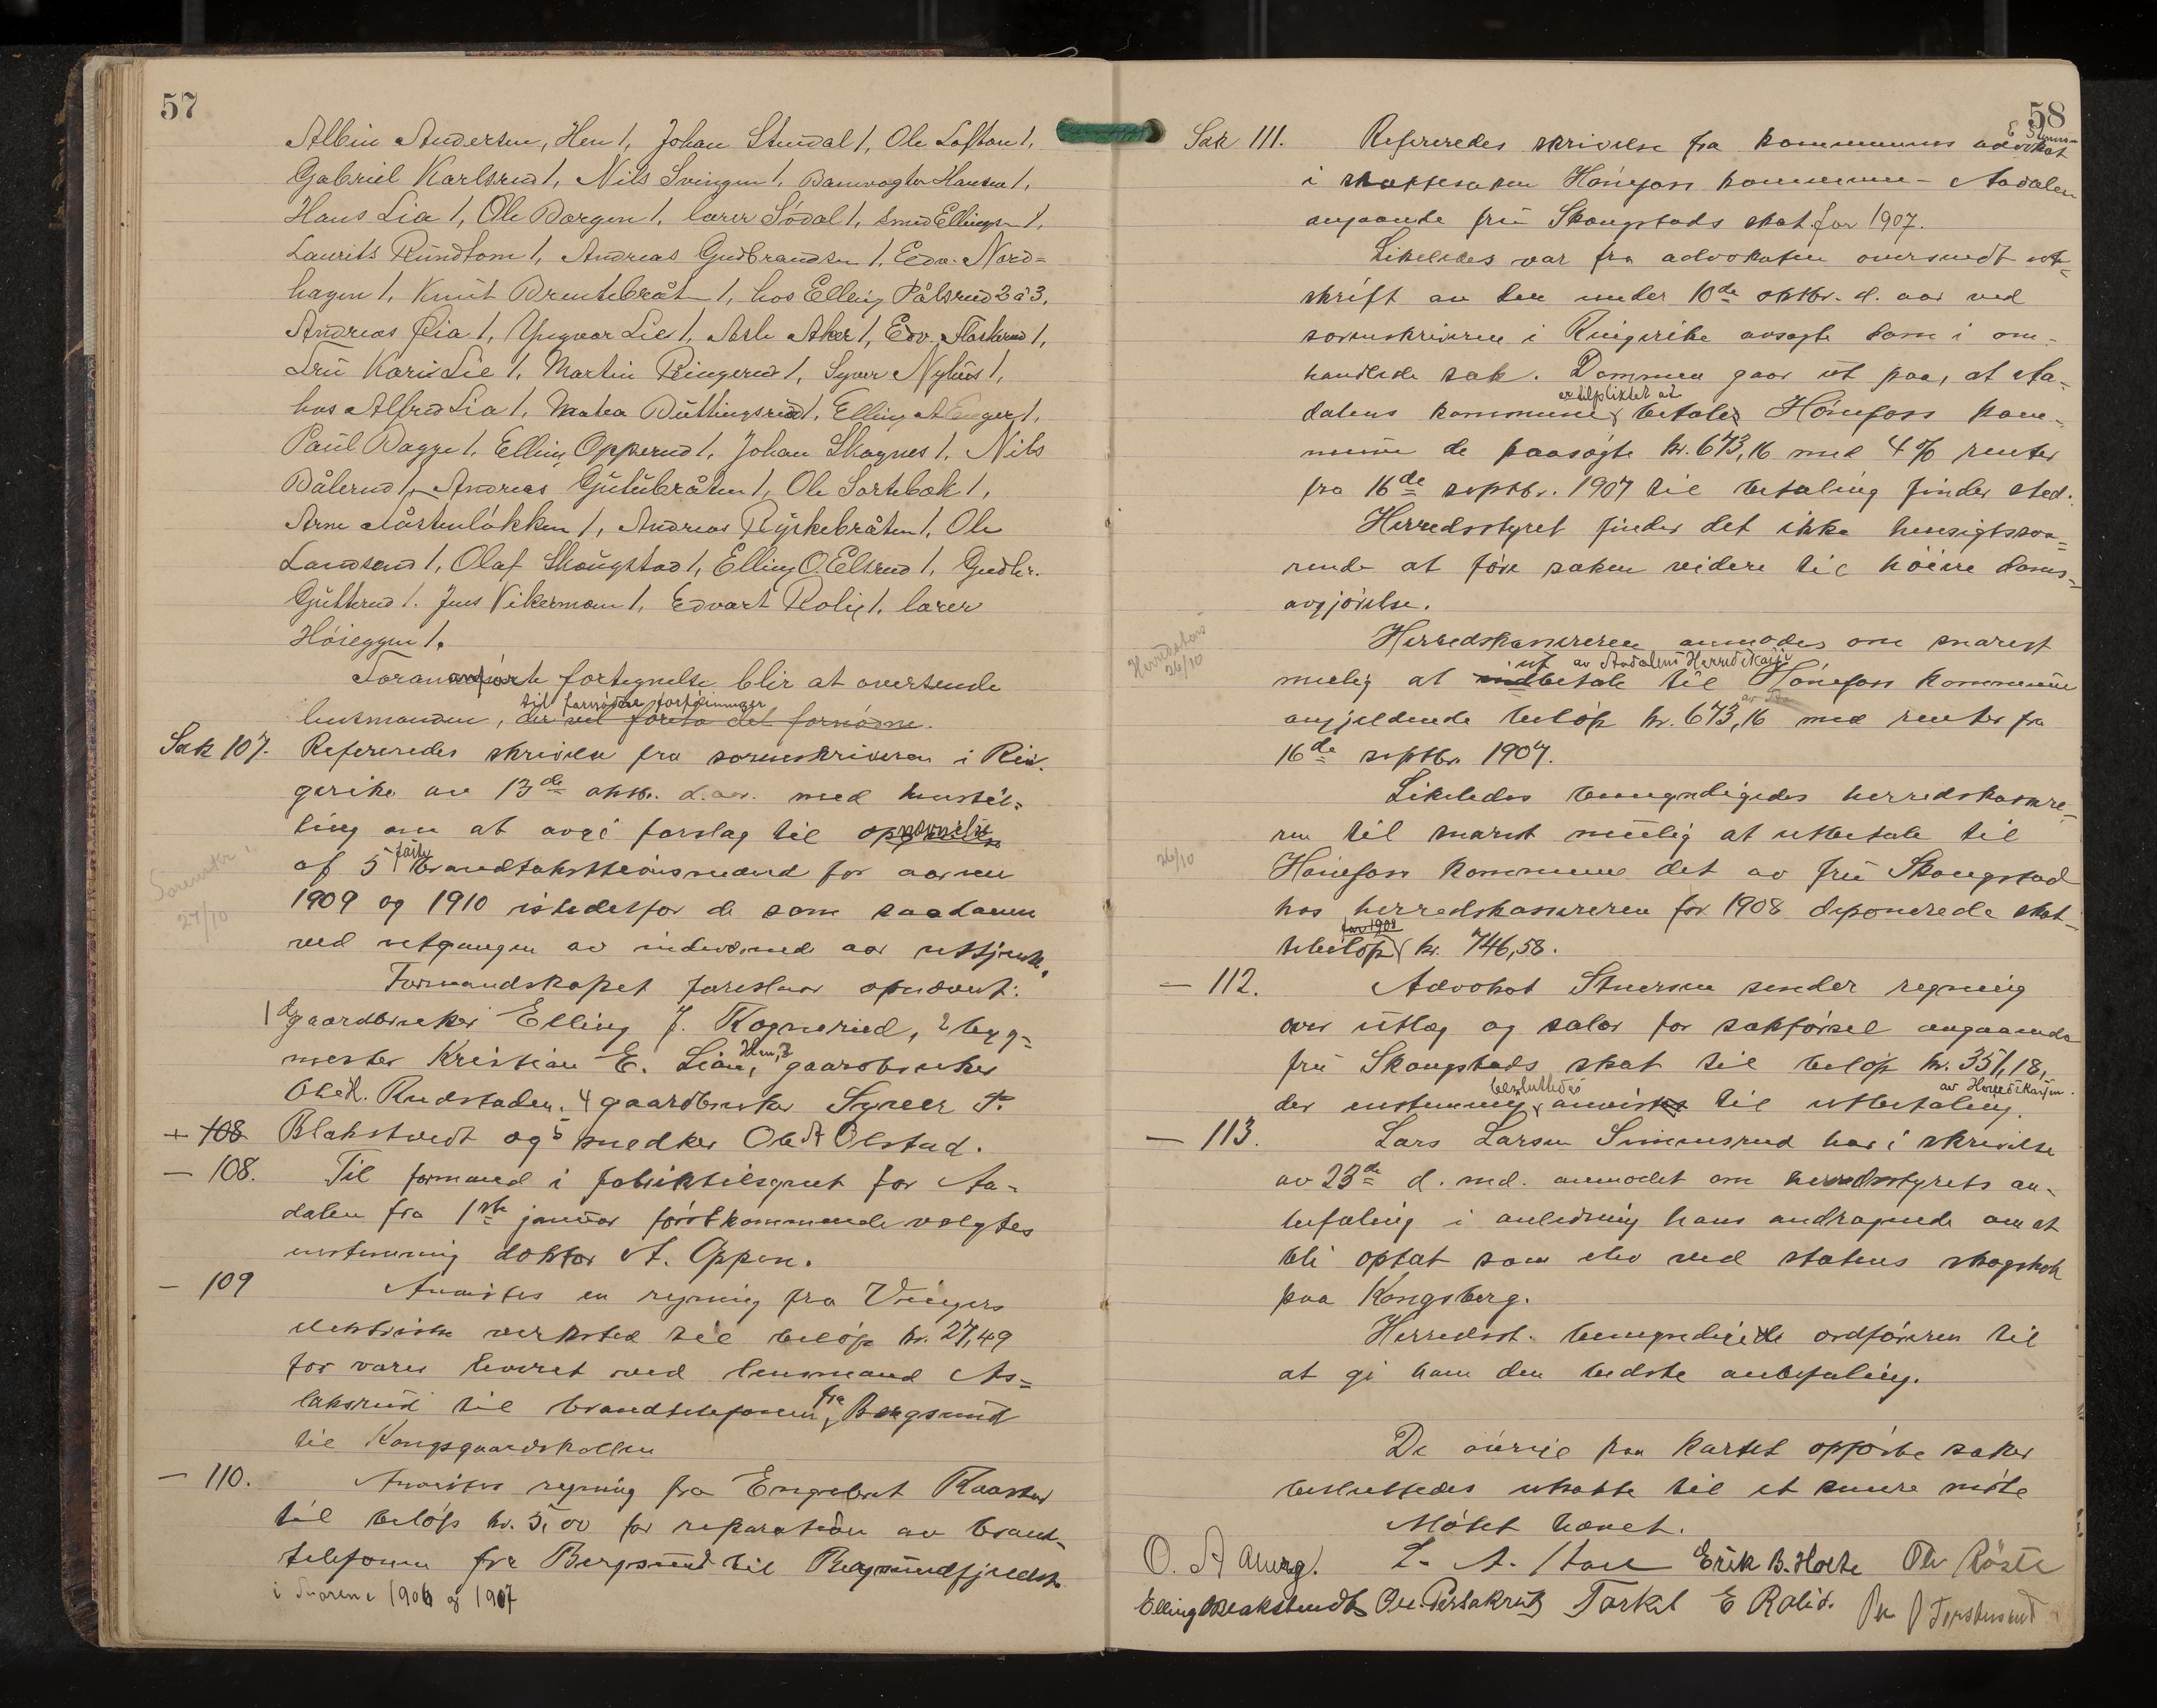 57
Albin Andersen, Hen 1, Johan Stendal 1, Ole Lofton 1,
Gabriel Karlsrud 1, Nils Svingen 1, Banevogter Hansen 1,
Hans Lia 1, Ole Borgen 1, lærer Södal 1, smed Ellingsen 1,
Laurits Rundtom 1, Andreas Gudbrandsen 1, Edv. Nord=
hagen 1, Knut Brentebråten 1, hos Elling Pålsrud 2 à 3,
Andreas Lia 1, Yngvar Lie 1, Asle Aker 1, Edv. Flaskerud 1,
Fru Kari Lie 1, Martin Ringerud 1, Syver Nyhus 1,
hos Alfred Lia 1, Mathea Buttingsrud 1, Elling A Enger 1,
Paul Bagge 1, Elling Opperud 1, Johan Skagnes 1, Nils
Bålerud 1, Andreas Gulubråten 1, Ole Sortebæk 1,
Arne Åslökken 1, Andreas Ryskebråten 1, Ole
Landsend 1, Olaf Skougstad 1, Elling O. Elsrud 1, Gudbr.
Gutterud 1. Jens Vikermoen 1, Edvart Rolig 1, lærer
Höieggen 1.
Foranførte fortegnelse blir at oversende
til fornödne forföininger
lensmanden, der vil foreta det fornödne.
Sak 107. Refereredes skrivelse fra sorenskriveren i Rin-
gerike av 13de oktbr. d. aar. med henstil=
ling om at avgi forslag til opnævnelse
af 5 faste brandtakstionsmænd for aarene
1909 og 1910 istedetfor de som saadanne
ved utgangen av indeværende aar uttjener.
Sorenskr.
27/10
Formandskapet foreslaar opnævnt:
1 gaardbruker Elling J. Rogneruud, 2 byg=
mester Kristian E. Lian, Hen, 3 gaardbruker
Ole H. Rudstaden. 4 gaardbruker Syver T.
+ 108 Blakstvedt og 5 snedker Ole A Olstad.
— 108. Til formand i fabriktilsynet for Aa-
dalen fra 1ste januar förstkommende valgtes
enstemmig doktor A. Oppen.
— 109 Anvistes en regning fra Vingers
elektriske verksted til belöp kr. 27,49
for varer leveret ved lensmand As=
laksrud til brandtelefonen fra Bergsund
til Kongsgaardskollen
— 110. Anvistes regning fra Engebret Kaastad
til belöp kr. 5,00 for reparation av brand-
telefonen fra Bergsund til Bergsundfjeldet
i aarene 1906 og 1907
58
Sak 111. Refereredes skrivelse fra kommunens advokat E Stuersen
i skattesaken Hönefoss kommune - Aadalen
angaaende fru Skougstads skat for 1907.
Likeledes var fra advokaten oversendt ut-
skrift av den under 10de oktbr. d. aar ved
sorenskriveren i Ringerike avsagte dom i om-
handlede sak. Dommen gaar ut paa, at Aa-
er tilpliktet at
dalens kommune betale Hönefoss kom-
mune de paasögte kr. 673,16 med 4 % renter
fra 16de septbr. 1907 til betaling finder sted.
Herredsstyret finder det ikke hensigtssva=
rende at före saken videre til höiere doms-
avgjörelse.
Herredskas
26/10
Herredskassereren anmodes om snarest
ut av Aadalens Herredskasse
mulig at indbetale til Hönefoss kommune
angjældende belöp kr. 673,16 med renter fra
16de septbr 1907.
Likeledes bemyndigedes herredskassere-
ren til snarest mulig at utbetale til
26/10
Hönefoss kommune det av fru Skougstad
hos herredskassereren for 1908 deponerede skat-
for 1908
tebelöp kr. 746,58.
— 112. Advokat Stuersen sender regning
over utlæg og salær for sakförsel angaaende
fru Skougstads skat til belöp kr. 351,18,
besluttedes av Herredskassen.
der enstemmig anvist til utbetaling.
— 113. Lars Larsen Simensrud har i skrivelse
av 23de d. md. anmodet om herredsstyrets an-
befaling i anledning hans andragende om at
bli optat som elev ved statens skogskole
paa Kongsberg.
Herredsst. bemyndigede ordföreren til
at gi ham den bedste anbefaling.
De övrige paa kartet opförte saker
besluttedes utsatte til et senere möte
Mötet hævet.
O. A Aurg. L. A. Erik B. Holte Ole Röste
Elling Blakstvedt Ole Torkel E Rolid.